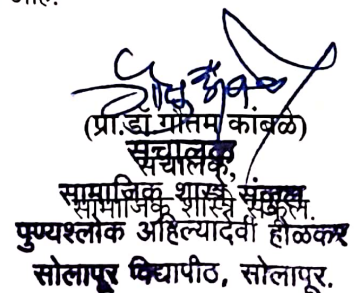 (प्रा.डॉ.गौतम कांबळे)
संचालक
संचालक,
सामाजिक शास्त्रे संकुल
सामाजिक शास्त्रे संकुल.
पुण्यश्लोक अहिल्यादेवी होळकर
सोलापूर विद्यापीठ, सोलापूर.